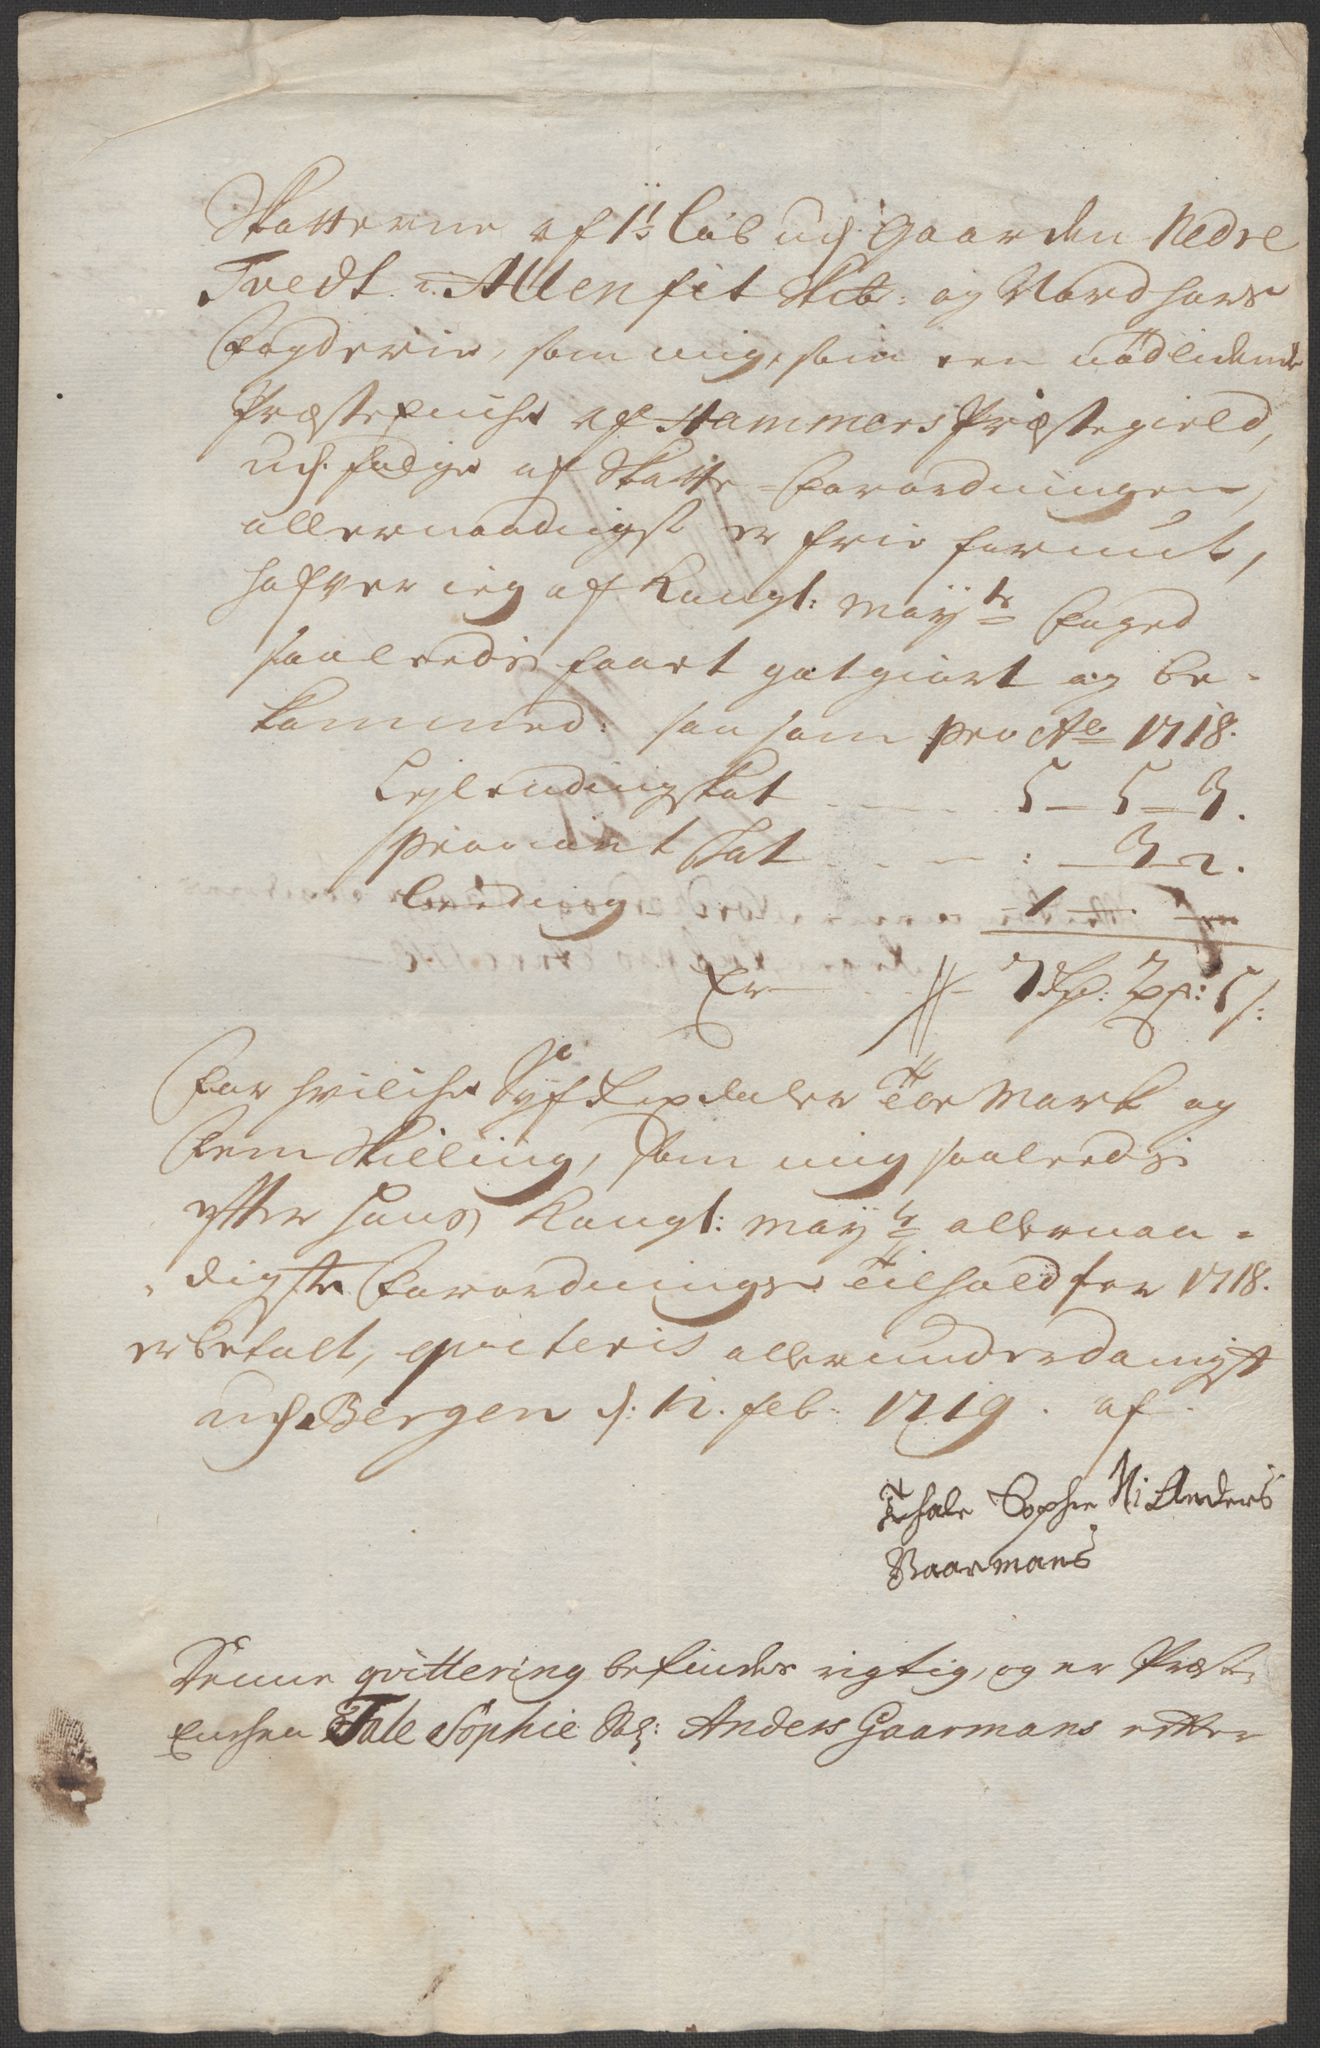 Skatterne af 1½ Løb udj Gaarden Nedre
Tvedt i Allenfit Skib: og Nordhors
Fogderie, som mig, som een nødlidende
Præsteenche af Hammers Præstegield,
udj følge af Skatte-Forordningen,
allernaadigst er frie forundt,
hafver ieg af Kongl: May:ts Foged
saaledis faaet gotgiort og be-
kommed: saasom pro Ao 1718.
Leylendingskat 5 - 5 - 9.
Proviant Skat : - 3 - 2.
Leeding 1 -
Er 7 Rdr: 2 mk: 5 s:
For hvilche Syf Rixdaler Toe Mark og
Fem Skilling, som mig saaledis
efter Hans Kongl: May:ts allernaa-
digste Forordnings Tilhold for 1718.
er betalt, qviteris allerunderdanigst
udj Bergen d: 12. feb: 1719. af
Thale Sophie Anders
Gaarmans
Denne qvittering befindes rigtig, og er Præst-
Enchen Tale Sophie Sal: Anders Gaarmans efter